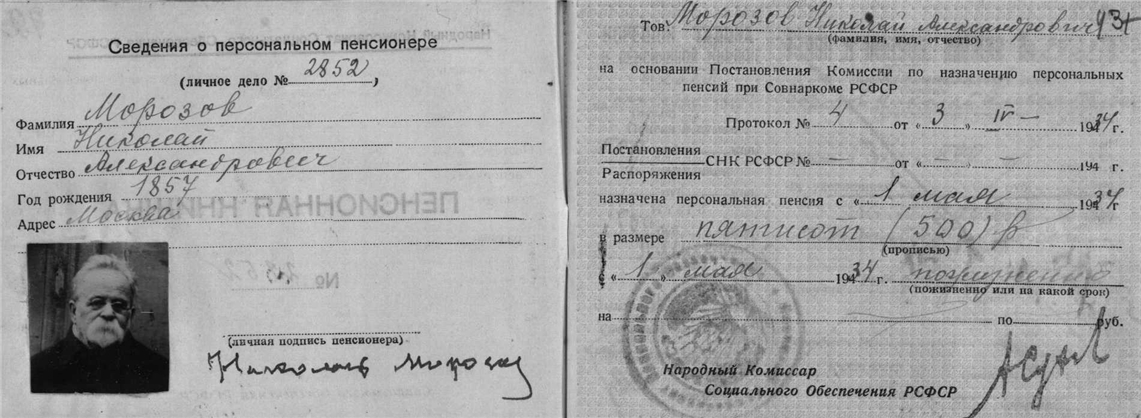 Сведения о персональном пенсионере
(личное дело № 2852)
Фамилия Морозов
Имя Николай
Отчество Александрович
Год рождения 1857
Адрес Москва
ПЕНСИОННАЯ КНИЖКА
№
(личная подпись пенсионера)
Николай Морозов
Тов. Морозов Николай Александрович
(фамилия, имя, отчество)
на основании Постановления Комиссии по назначению персональных
пенсий при Совнаркоме РСФСР
Протокол № 4 от „ 3 " IV — 1934 г.
Постановления
СНК РСФСР № — от „ — " — 194 г.
Распоряжения
назначена персональная пенсия с „ 1 " мая 1934 г
в размере пятисот (500) р
(прописью)
с „ 1 " мая 1934 г. пожизненно
(пожизненно или на какой срок)
на по руб.
Народный Комиссар
Социального Обеспечения РСФСР